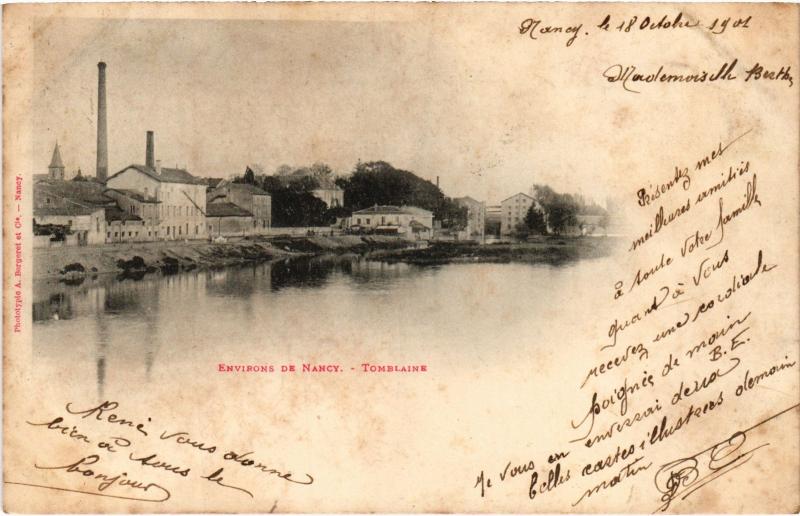 Nancy. le 18 Octobre 1901
Mademoiselle Berthe
Présentez mes
meilleures amitiés
à toute votre famille
quant à vous
recevez une cordiale
poignée de main
B. E.
Je vous en enverrai deux
belles cartes illustrées demain
matin
BE
René vous donne
bien à tous le
bonjour
Environs de Nancy. - Tomblaine
Phototypie A. Bergeret et Cie. — Nancy.